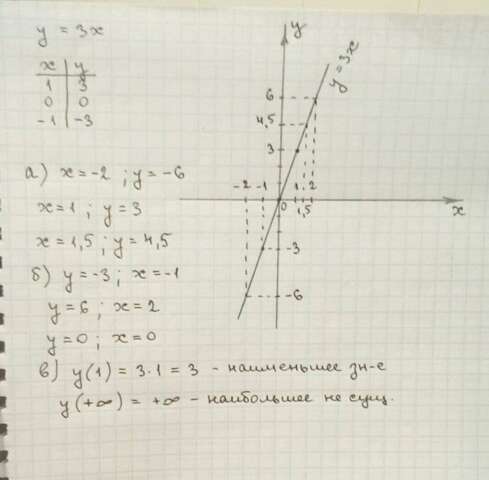 y = 3x
x | y
1 | 3
0 | 0
-1 | -3
а) x = -2 ; y = -6
x = 1 ; y = 3
x = 1,5 ; y = 4,5
б) y = -3 ; x = -1
y = 6 ; x = 2
y = 0 ; x = 0
в) y(1) = 3·1 = 3 - наименьшее зн-е
y(+∞) = +∞ - наибольшее не сущ.
y
y = 3x
6
4,5
3
-2 -1 1 2
0 1,5 x
-3
-6